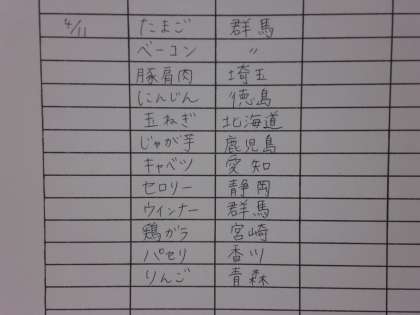 4/11 たまご 群馬
ベーコン 〃
豚肩肉 埼玉
にんじん 徳島
玉ねぎ 北海道
じゃが芋 鹿児島
キャベツ 愛知
セロリー 静岡
ウィンナー 群馬
鶏ガラ 宮崎
パセリ 香川
りんご 青森